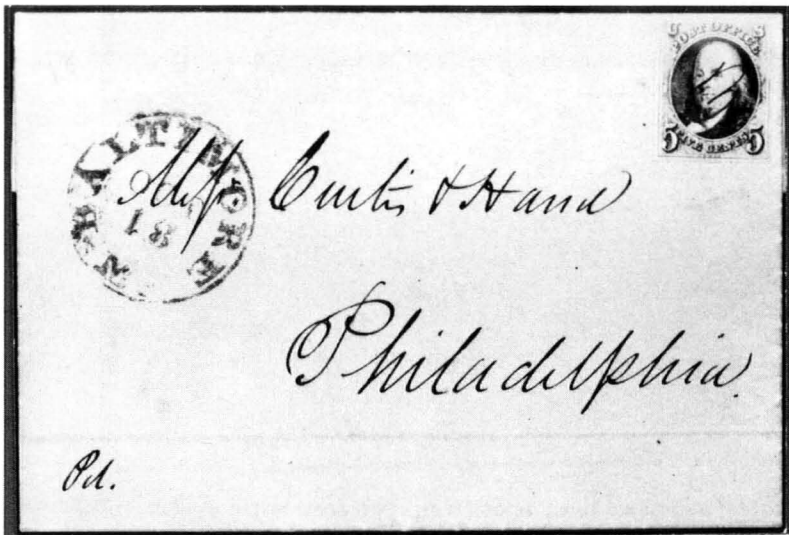 U S
POST OFFICE
5 FIVE CENTS 5
BALTIMORE
Mess Curtis & Hand
Philadelphia
Pd.